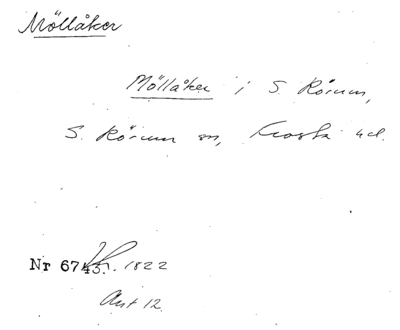 Mölläker
Mölläker i S. Rörum,
S. Rörum sn, Frosta hd.
Nr 6743. 1822
Ant 12.